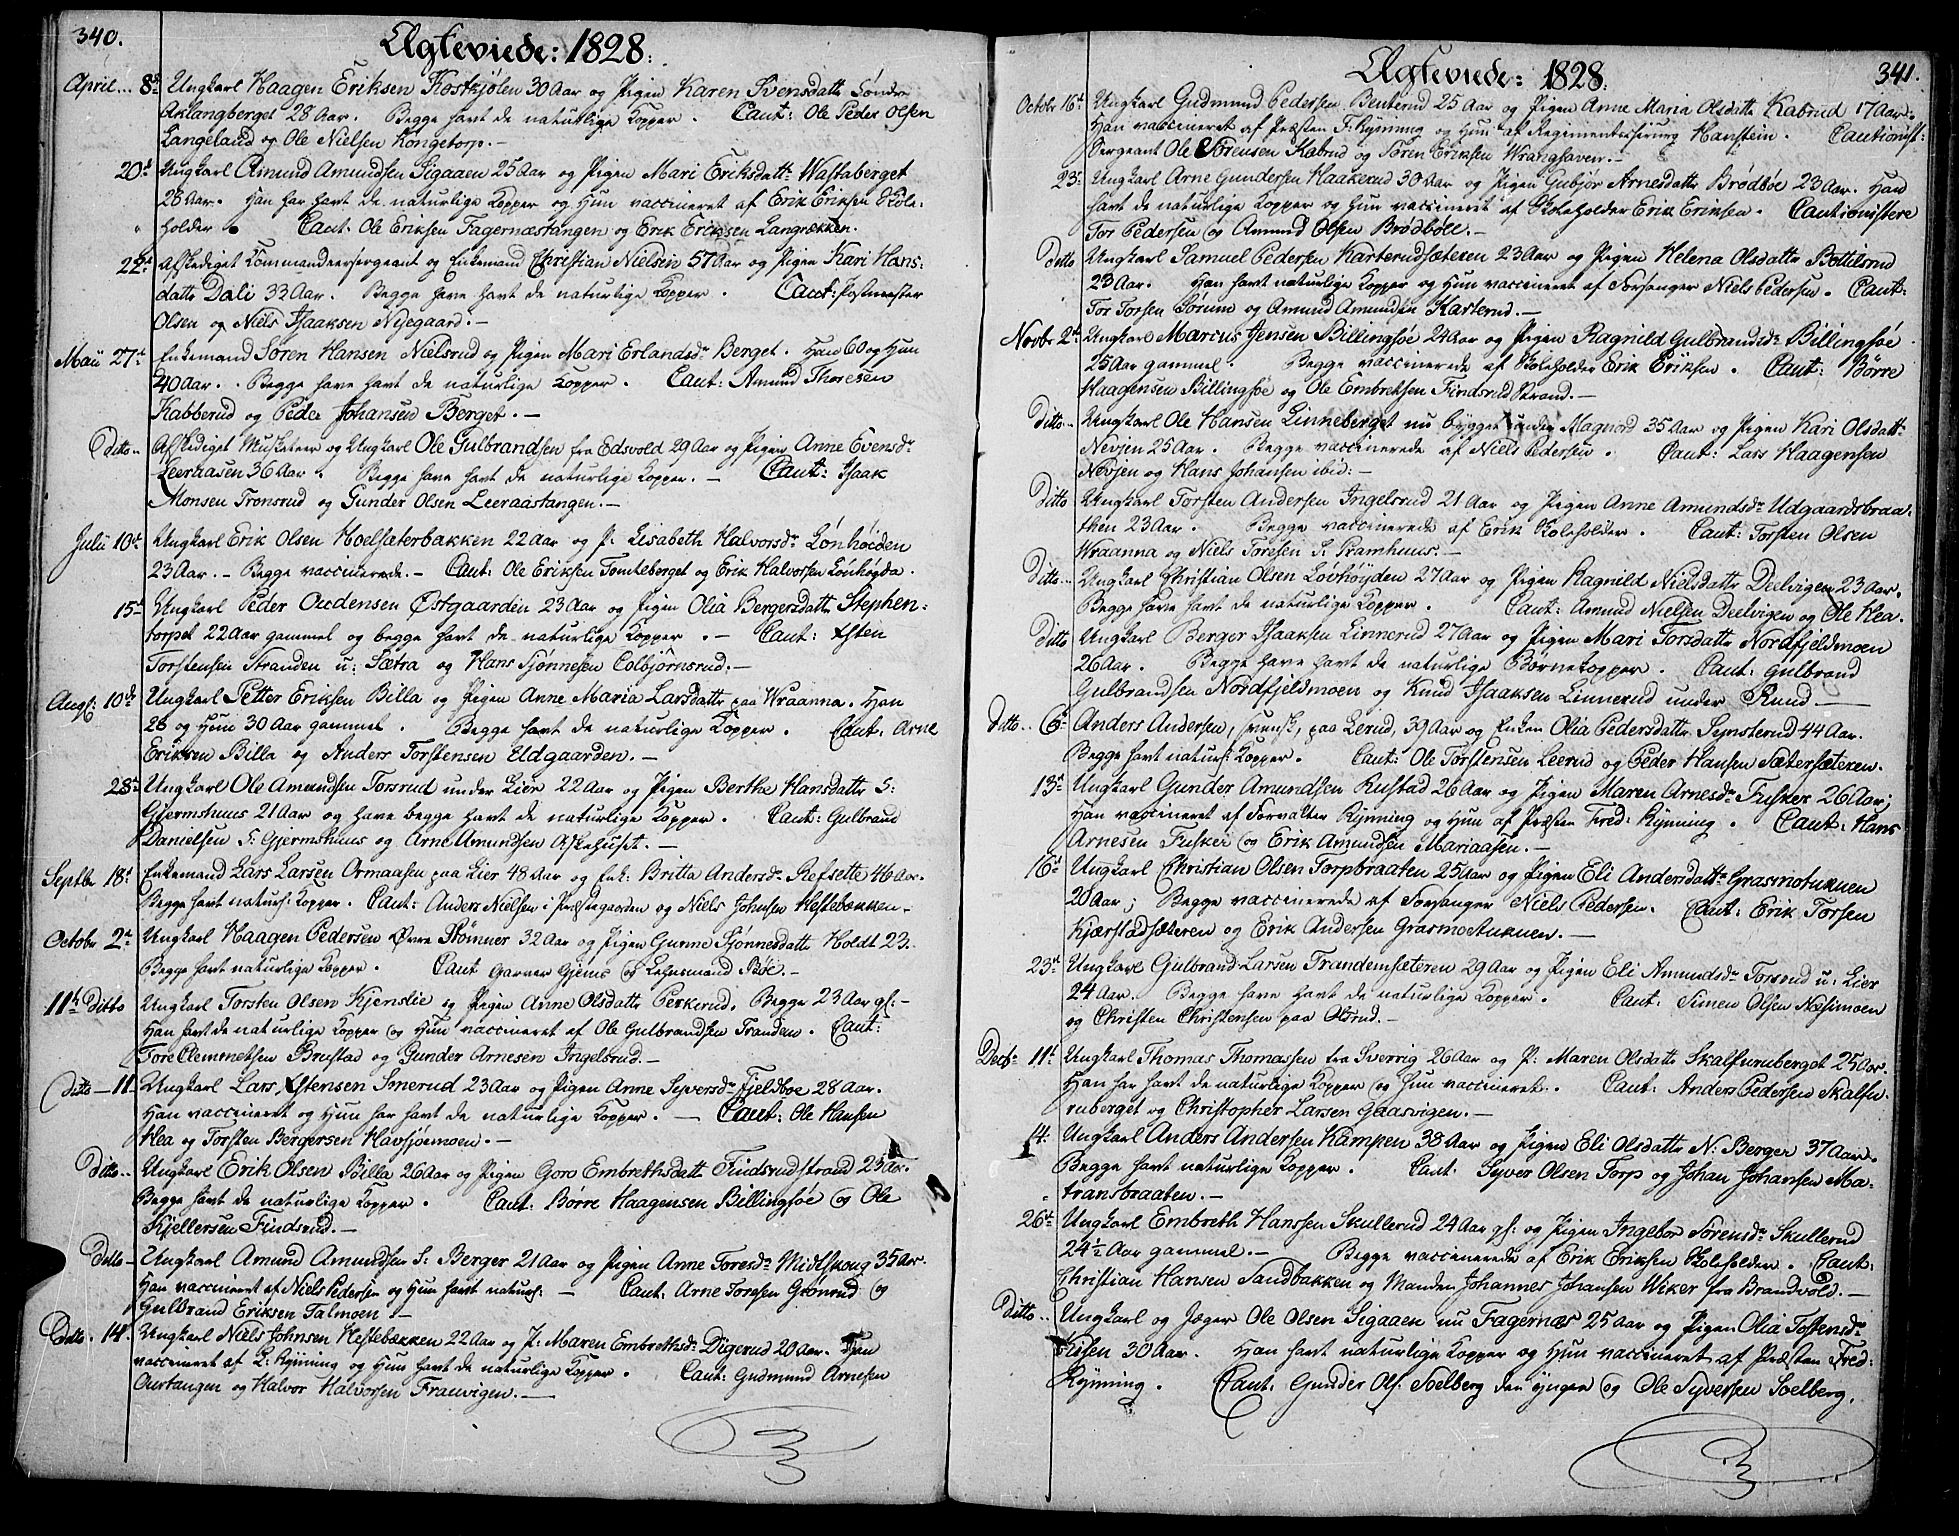 340.
Ægteviede: 1828.
April... 8de Ungkarl Haagen Eriksen Kostkjølen 30 Aar og Pigen Karen Svensdatt: Søndre
Aklangberget 28 Aar. Begge havt de naturlige Kopper. Caut: Ole Peder Olsen
Langeland og Ole Nielsen Kongetorp.-
20d Ungkarl Asmund Amundsen Sigaaen 25 Aar og Pigen Mari Eriksdattr Wastaberget
28 Aar. Han har havt de naturlige Kopper og Hun vaccineret af Erik Eriksen Skole:
holder. Caut: Ole Eriksen Fagernæstangen og Erik Eriksen Langrækken.
22d Afskediget Commandeersergeant og Enkemand Christian Nielsen 57 Aar og Pigen Kari Hans:
datte Dali 33 Aar. Begge have havt de naturlige Kopper. Caut: Postmester
Olsen og Niels Isaaksen Nysgaard.-
Maii 27d Enkemand Søren Hansen Nielsrud og Pigen Mari Erlandsdr Berget. Han 60 og Hun
40 Aar. Begge have havt de naturlige Kopper. Caut: Amund Thoresen
Kabberud og Peder Johansen Berget.-
Ditto.. Afskediget Musketeer og Ungkarl Ole Gulbrandsen fra Edsvold 29 Aar og Pigen Anne Evensdr
Leeraasen 36 Aar. Begge have havt de naturlige Kopper.- Caut: Isaak
Monsen Tronsrud og Gunder Olsen Leeraastangen.-
Julii 10d Ungkarl Erik Olsen Hoelsæterbakken 22 Aar og P: Lisabeth Halvorsdr Lønhøiden
23 Aar.- Begge vaccinerede.- Caut: Ole Eriksen Tomteberget og Erik Halvorsen Lønhøgda.
15d Ungkarl Peder Ouddensen Østgaarden 23 Aar og Pigen Olia Bergersdatte Stephen:
torpet 22 Aar gammel og begge havt de naturlige Kopper.- Caut: Esten
Torstensen Stranden u: Sætra og Hans Tjønnesen Colbjørnsrud.-
Augs: 10de Ungkarl Petter Eriksen Billa og Pigen Anne Maria Larsdatte paa Wraanna. Han
28 og Hun 30 Aar gammel. Begge havt de naturlige Kopper. Caut: Arne
Eriksen Billa og Anders Torstensen Udgaarden.-
28d Ungkarl Ole Amundsen Torsrud under Lier 22 Aar og Pigen Berthe Hansdatte S:
Gjermshuus 21 Aar og have begge havt de naturlige Kopper. Caut: Gulbrand
Danielsen S: Gjermshuus og Arne Amundsen Askehuset.-
Septbr 18d Enkemand Lars Larsen Ormaasen paa Lier 48 Aar og Enk: Britta Andersdr Refsette 46 Aar.
Begge havt naturl: Kopper. Caut: Anders Nielsen i Præstegaarden og Niels Johnsen Hestebækken.
Octobr 2d Ungkarl Haagen Pedersen Øvre Stømner 32 Aar og Pigen Gunne Tjønnesdatte Holdt 23.
Begge havt naturlige Kopper. Caut Garver Gjems og Lehnsmand Bøe.-
11te Ditto Ungkarl Torsten Olsen Kjenslie og Pigen Anne Olsdatte Perkerud. Begge 23 Aar gl:-
Han havt de naturlige Kopper og Hun vaccineret af Ole Gulbrandsen Tranden. Caut:
Tore Clemmetsen Brustad og Gunder Arnesen Ingelsrud.-
Ditto - 11 - Ungkarl Lars Estensen Smerud 23 Aar og Pigen Anne Syversdr Fjeldboe 28 Aar.
Han vaccineret og Hun har havt de naturlige Kopper.- Caut: Ole Hansen
Hea og Torsten Bergersen Havsjoemoen.-
Ditto.. Ungkarl Erik Olsen Billa 26 Aar og Pigen Goro Embrethsdatt Findsrudstrand 23 Aar.
Begge havt de naturlige Kopper. Caut: Børre Haagensen Billingsøe og Ole
Kjellersen Findsrud.-
Ditto - Ungkarl Amund Amundsen S: Berger 21 Aar og Pigen Anne Toresdr Midtskoug 35 Aar.
Han vaccineret af Niels Pedersen og Hun havt naturl:- Caut: Arne Toresen Grønrud og
Gulbrand Eriksen Talmoen.-
Ditto. 14. Ungkarl Niels Johnsen Hestebækken 22 Aar og P: Maren Embrethsdr Digerud 20 Aar. Han
vaccineret af P: Rynning og Hun havt de naturlige Kopper. Caut: Gudmund Arnesen
Ourtangen og Halvor Halvorsen Frauvigen.-
341.
Ægteviede: 1828.
Octobr 16d Ungkarl Gudmund Pedersen Benterud 25 Aar og Pigen Anne Maria Olsdatte Kabrud 17 Aar.
Han vaccineret af Præsten F: Rynning og Hun af Regimentschirurg Hanstein. Cautionist:
Sergeant Ole Sørensen Kabrud og Søren Eriksen Wranghaven.-
23. Ungkarl Arne Gundersen Haakerud 30 Aar og Pigen Gubjør Arnesdatte Brødbøe 23 Aar. Han
havt de naturlige Kopper og Hun vaccineret af Skoleholder Erik Eriksen. Cautionistere
Tor Pedersen og Amund Olsen Brødbøll.-
Ditto Ungkarl Samuel Pedersen Karterudsæteren 23 Aar og Pigen Helena Olsdatte Bottilsrud
23 Aar. Han havt naturlige Kopper og Hun vaccineret af Forsanger Niels Pedersen. Caut:
Tor Torsen Sørum og Amund Amundsen Karterud.-
Novbr 2d Ungkarl Marcus Jensen Billingsøe 24 Aar og Pigen Ragnild Gulbrandsdr Billingsøe
25 Aar gammel. Begge vaccinerede af Skoleholder Erik Eriksen. Caut: Børre
Haagensen Billingsøe og Ole Embretsen Findsrud Strand.-
Ditto.. Ungkarl Ole Hansen Linneberget nu bygget under Magnord 35 Aar og Pigen Kari Olsdatte
Nevsen 25 Aar. Begge vaccinerede af Niels Pedersen. Caut: Lars Haagensen
Nevsen og Hans Johansen ibid:-
Ditto Ungkarl Torsten Andersen Ingelsrud 21 Aar og Pigen Anne Amundsdr Udgaardsbraa-
then 23 Aar. Begge vaccinerede af Erik Skoleholder. Caut: Torsten Olsen
Wraanna og Niels Toresen S: Pramhuus.-
Ditto.. Ungkarl Christian Olsen Løvhøyden 27 Aar og Pigen Ragnild Nielsdatte Deelvigen 23 Aar.
Begge have havt de naturlige Kopper. Caut: Amund Nielsen Deelvigen og Ole Hea.
Ditto Ungkarl Berger Isaaksen Linnerud 27 Aar og Pigen Mari Torsdatte Nordfjeldmoen
26 Aar. Begge have havt de naturlige Børnekopper. Caut: Gulbrand
Gulbrandsen Nordfjeldmoen og Knud Isaaksen Linnerud under Ruud.-
Ditto.. 6. Anders Andersen, svensk, paa Lerud, 39 Aar og Enken Olia Pedersdatte Synsterud 44 Aar.
Begge havt naturl: Kopper. Caut: Ole Torstensen Leerud og Peder Hansen Sætersæteren.
13d Ungkarl Gunder Amundsen Rustad 26 Aar og Pigen Maren Arnesdr Fusker 26 Aar;
Han vaccineret af Forvalter Rynning og Hun af Præsten Fred: Rynning. Caut: Hans
Arnesen Fusker og Erik Amundsen Mariaasen.-
16d Ungkarl Christian Olsen Torpbraaten 25 Aar og Pigen Eli Andersdatte Grasmotuknen
20 Aar; Begge vaccinerede af Forsanger Niels Pedersen. Caut: Erik Torsen
Kjærstadsæteren og Erik Andersen Grasmoetuknen.-
23d Ungkarl Gulbrand Larsen Trandemsæteren 29 Aar og Pigen Eli Amundsdr Torsrud u: Lier
24 Aar. Begge have havt de naturlige Kopper. Caut: Simen Olsen Næsimoen
og Christen Christensen paa Ostrud.-
Decbr 11d Ungkarl Thomas Thomassen fra Sverrig 26 Aar og P: Maren Olsdatte Skalfuruberget 25 Aar.
Han har havt de naturlige Kopper og Hun vaccineret. Caut: Anders Pedersen Skalfu-
ruberget og Christopher Larsen Gaasvigen.-
14. Ungkarl Anders Andersen Kampen 38 Aar og Pigen Eli Olsdatte N: Berger 37 Aar.
Begge havt naturlige Kopper. Caut. Syver Olsen Torp og Johan Johansen Ma-
transbraaten.-
26d Ungkarl Embreth Hanssen Skullerud 24 Aar gl: og Pigen Ingebor Sorensdr Skullerud
24½ Aar gammel.- Begge vaccinerede af Erik Eriksen Skoleholder. Caut:
Christian Hansen Sandbakken og Manden Johannes Johansen Wiker fra Brandvold.-
Ditto.. Ungkarl og Jæger Ole Olsen Sigaaen nu Fagernæs 25 Aar og Pigen Olia Tostensdr
Kiisen 30 Aar. Han havt naturlige Kopper og Hun vaccineret af Præsten Fred:
Rynning. Caut: Gunder Ols: Soelberg den yngre og Ole Syversen Soelberg.